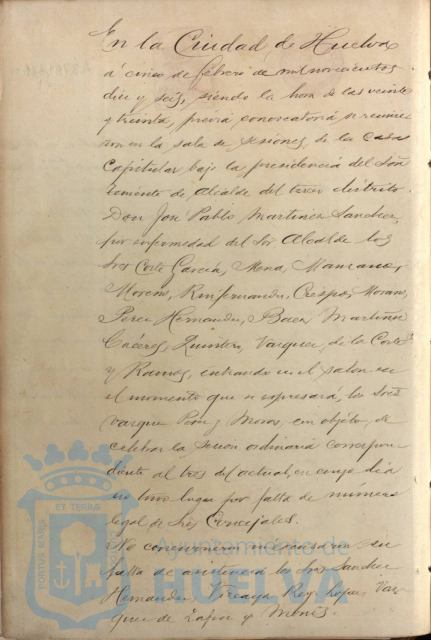 En la Ciudad de Huelva
á cinco de febrero de mil novecientos
diez y seis, siendo la hora de las veinte
y treinta, previa convocatoria se reunie
ron en la sala de sesiones, de la Casa
Capitular bajo la presidencia del Señor
teniente de Alcalde del tercer distrito
Don José Pablo Martinez Sanchez,
por enfermedad del Sr Alcalde los
Sres Corte Garcia, Mena, Manzano,
Moreno, Ruifernandez, Crespo, Morano,
Perez Hernandez, Baez, Martin
Cáceres, Quintero, Vazquez, de la Corte
y Ramos, entrando en el salon en
el momento que se expresará, los Sres
Vazquez Perez y Moron, con objeto, de
celebrar la sesion ordinaria correspon
diente al tres del actual, en cuyo dia
no tuvo lugar por falta de número
legal de Sres Concejales.
No concurrieron su
falta de asistencia los Sres Sanchez
Hernandez, Vizcaya, Rey, Lopez, Vaz
quez de Zafra y
PORTUS MARIS ET TERRAE
Ayuntamiento de
HUELVA